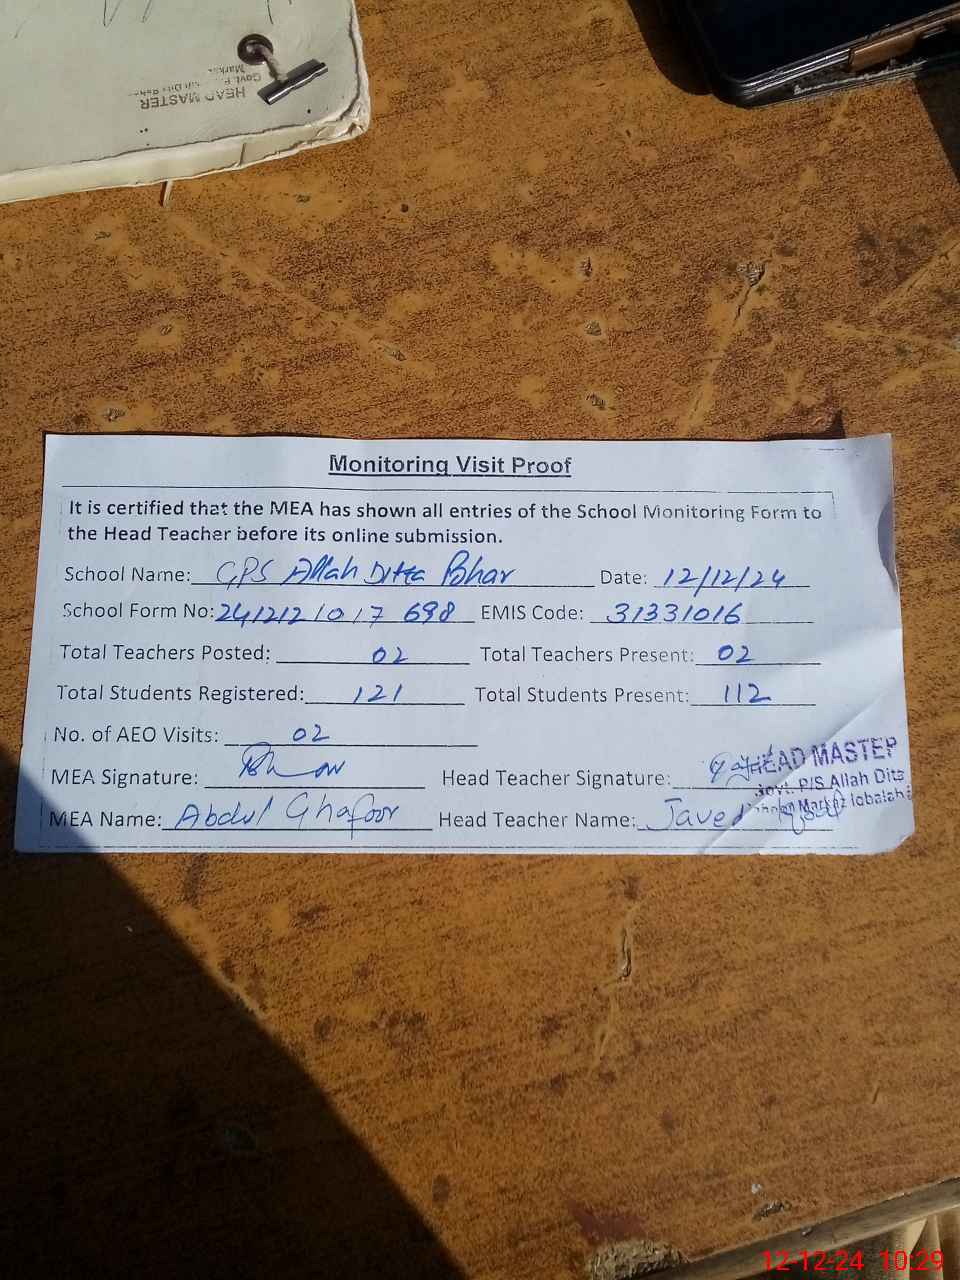 HEAD MASTER
Govt. P
Marka
Monitoring Visit Proof
It is certified that the MEA has shown all entries of the School Monitoring Form to
the Head Teacher before its online submission.
School Name: GPS Allah Ditta Bhar Date: 12/12/24
School Form No: 2412121017 698 EMIS Code: 31331016
Total Teachers Posted: 02 Total Teachers Present: 02
Total Students Registered: 121 Total Students Present: 112
No. of AEO Visits: 02
MEA Signature: Head Teacher Signature:
HEAD MASTER
Govt. P/S Allah Ditta
Markaz Iqbalabad
MEA Name: Abdul Ghafoor Head Teacher Name: Javed
12-12-24 10:29